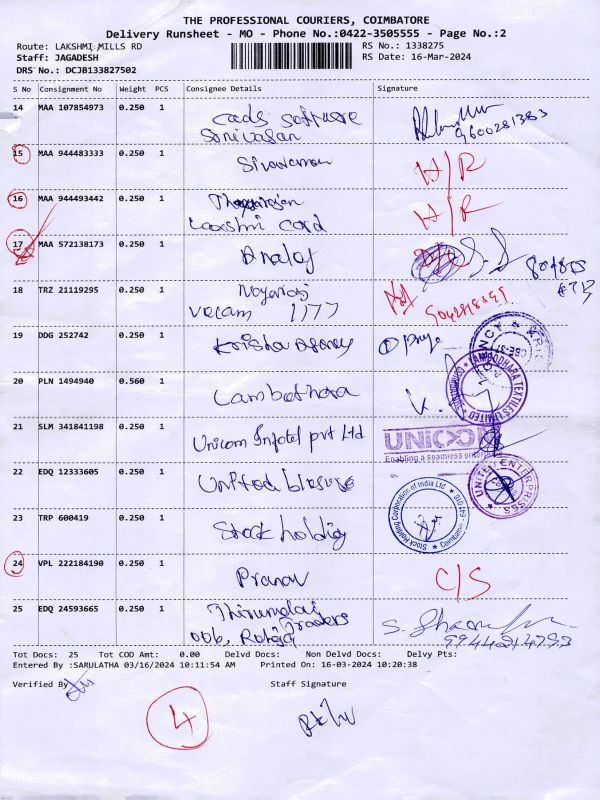 THE PROFESSIONAL COURIERS, COIMBATORE
Delivery Runsheet - MO - Phone No.:0422-3505555 - Page No.:2
Route: LAKSHMI MILLS RD RS No.: 1338275
Staff: JAGADESH RS Date: 16-Mar-2024
DRS No.: DCJB133827502
S No Consignment No Weight PCS Consignee Details Signature
14 MAA 107854973 0.250 1 cads software
Srinivasan 9600281383
15 MAA 944483333 0.250 1 Sivaraman H/R
16 MAA 944493442 0.250 1 H/R
Laxshmi card
17 MAA 572138173 0.250 1
18 TRZ 21119295 0.250 1
1177
19 DDG 252742 0.250 1 Krisha Agency
20 PLN 1494940 0.560 1 Lambothara
21 SLM 341841198 0.250 1 Unicom Infotel pvt Ltd UNICOM
Enabling a seamless
22 EDQ 12333605 0.250 1 United UNITED ENTERPRISES
23 TRP 600419 0.250 1 Stock holding Stock Holding Corporation of India Ltd
24 VPL 222184190 0.250 1 Pranav C/S
25 EDQ 24593665 0.250 1 Thirumalai
Traders
Tot Docs: 25 Tot COD Amt: 0.00 Delvd Docs: Non Delvd Docs: Delvy Pts:
Entered By :SARULATHA 03/16/2024 10:11:54 AM Printed On: 16-03-2024 10:20:38
Verified By Staff Signature
4